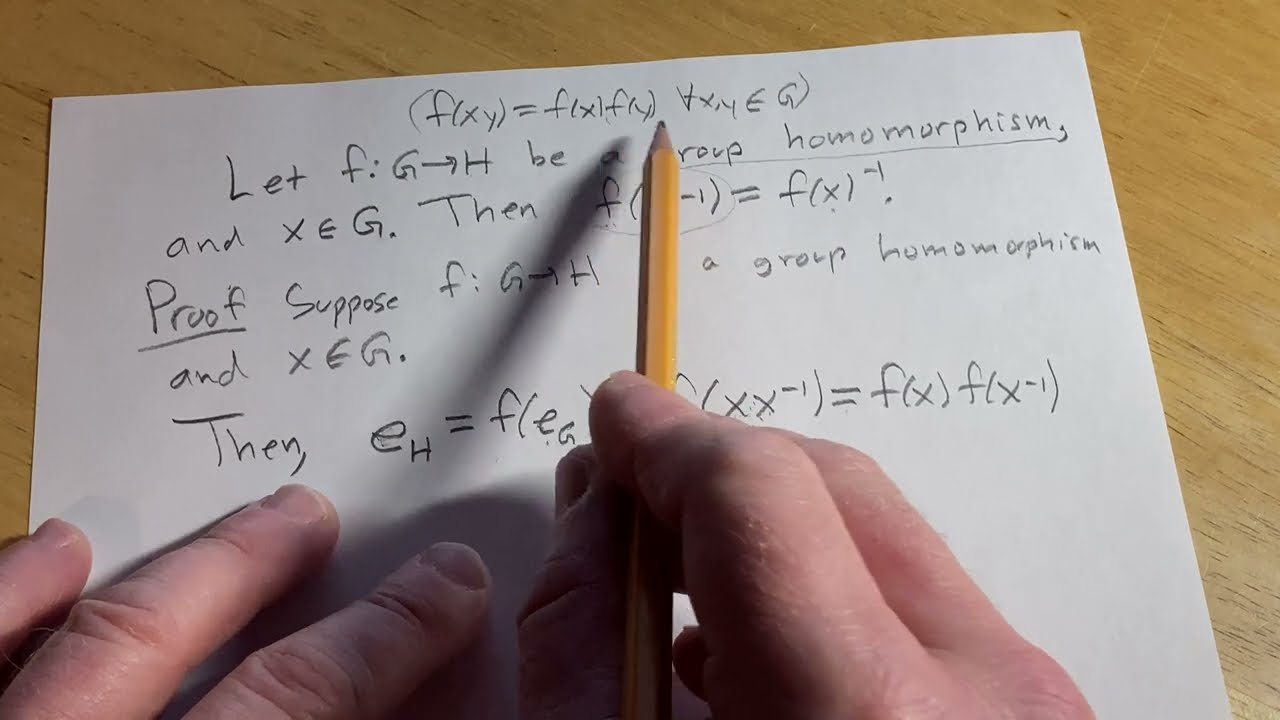 (f(xy) = f(x)f(y) ∀x,y ∈ G)
Let f: G→H be a group homomorphism,
and x ∈ G. Then f( -1) = f(x)⁻¹.
Proof Suppose f: G→H a group homomorphism
and x ∈ G.
Then, e_H = f(e_G f(xx⁻¹) = f(x) f(x-1)